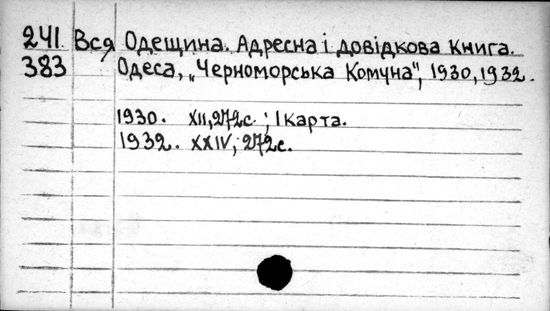 241 Вся Одещина. Адресна і довідкова книга.
383 Одеса, „Черноморська Комуна", 1930, 1932.
1930. XII, 272 с.; 1 карта.
1932. XXIV; 272 с.